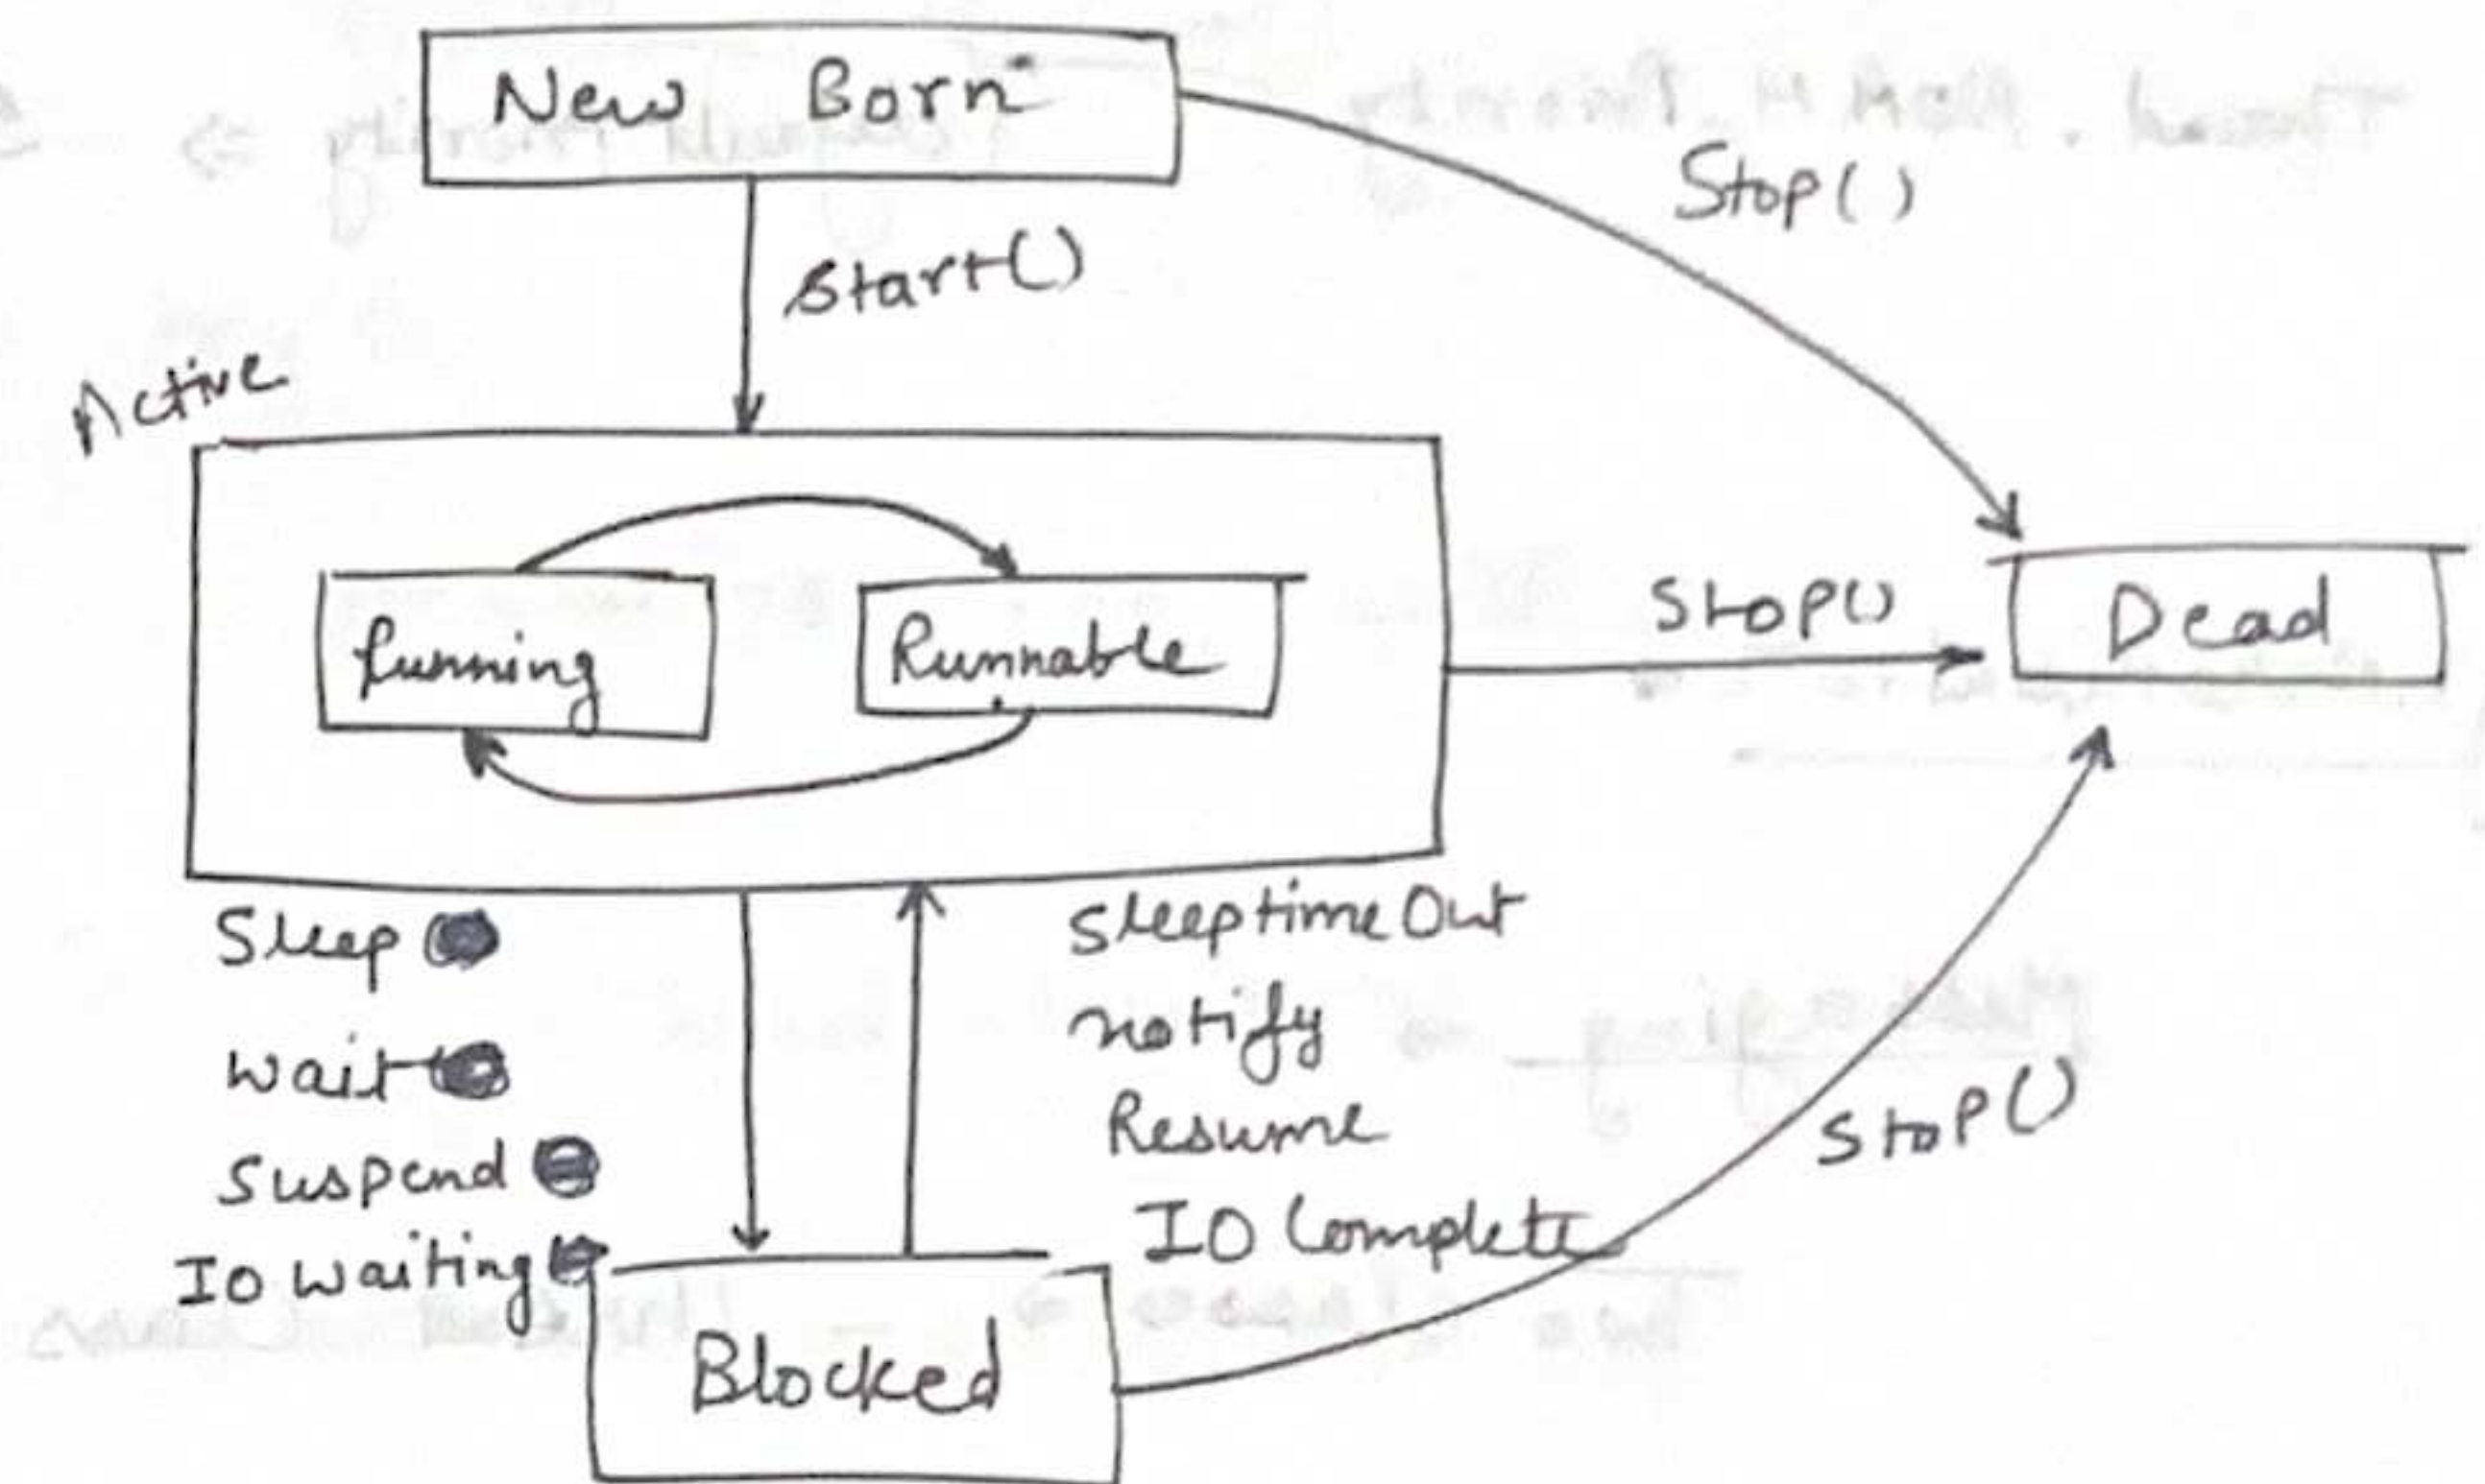 New Born
Stop()
Start()
Active
Running
Runnable
Stop()
Dead
Sleep
wait
Suspend
IO waiting
SleeptimeOut
notify
Resume
IO Complete
Stop()
Blocked